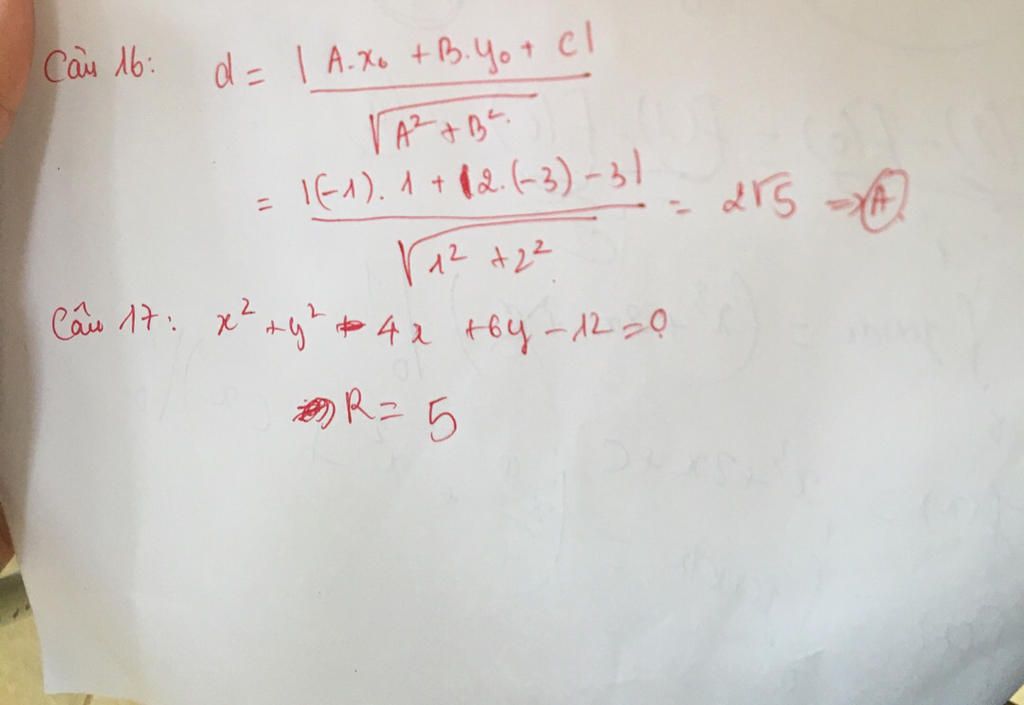 Câu 16: d = |A.x₀ + B.y₀ + C| / √(A² + B²)
= |(-1).1 + 2.(-3) - 3| / √(1² + 2²) = 2√5 ⇒ A
Câu 17: x² + y² - 4x + 6y - 12 = 0
R = 5